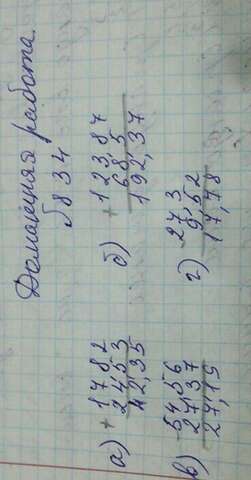 Домашняя работа
№834
а) + 17,82
24,53
42,35
б) + 123,87
68,5
192,37
в) - 54,56
27,37
27,19
г) - 27,3
9,52
17,78